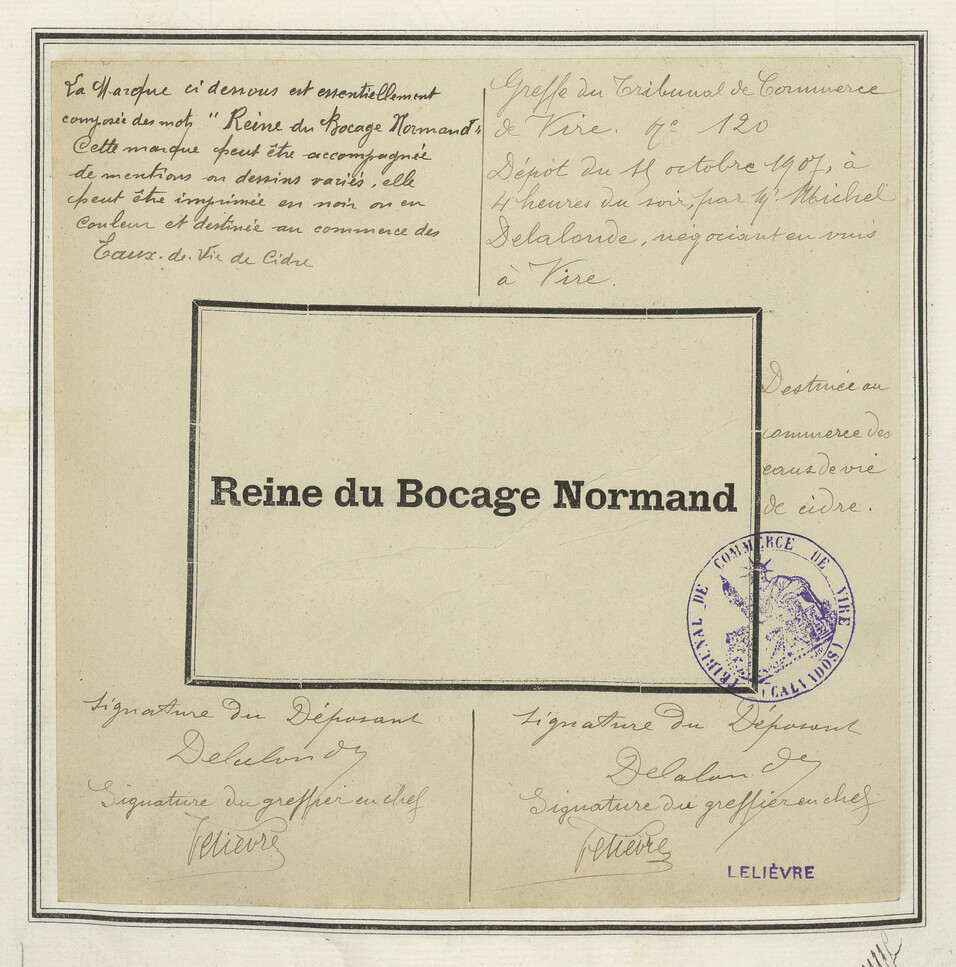 La Marque ci dessous est essentiellement
composée des mots "Reine du Bocage Normand"
Cette marque peut être accompagnée
de mentions ou dessins variés, elle
peut être imprimée en noir ou en
couleur et destinée au commerce des
Eaux-de-Vie de Cidre
Greffe du Tribunal de Commerce
de Vire. No 120
Dépôt du octobre 1907, à
4 heures du soir, par Mr Michel
Delalonde, négociant en vins
à Vire.
Destinée au
commerce des
eaux de vie
de cidre.
Reine du Bocage Normand
TRIBUNAL DE COMMERCE DE VIRE (CALVADOS)
Signature du Déposant
Delalonde
Signature du greffier en chef
Lelièvre
Signature du Déposant
Delalonde
Signature du greffier en chef
Lelièvre
LELIÈVRE